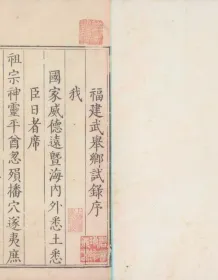 福建武舉鄉試錄序
我
國家威德遠暨海內外悉土悉
臣日者席
祖宗神靈平酋忽殞播穴遂夷庶